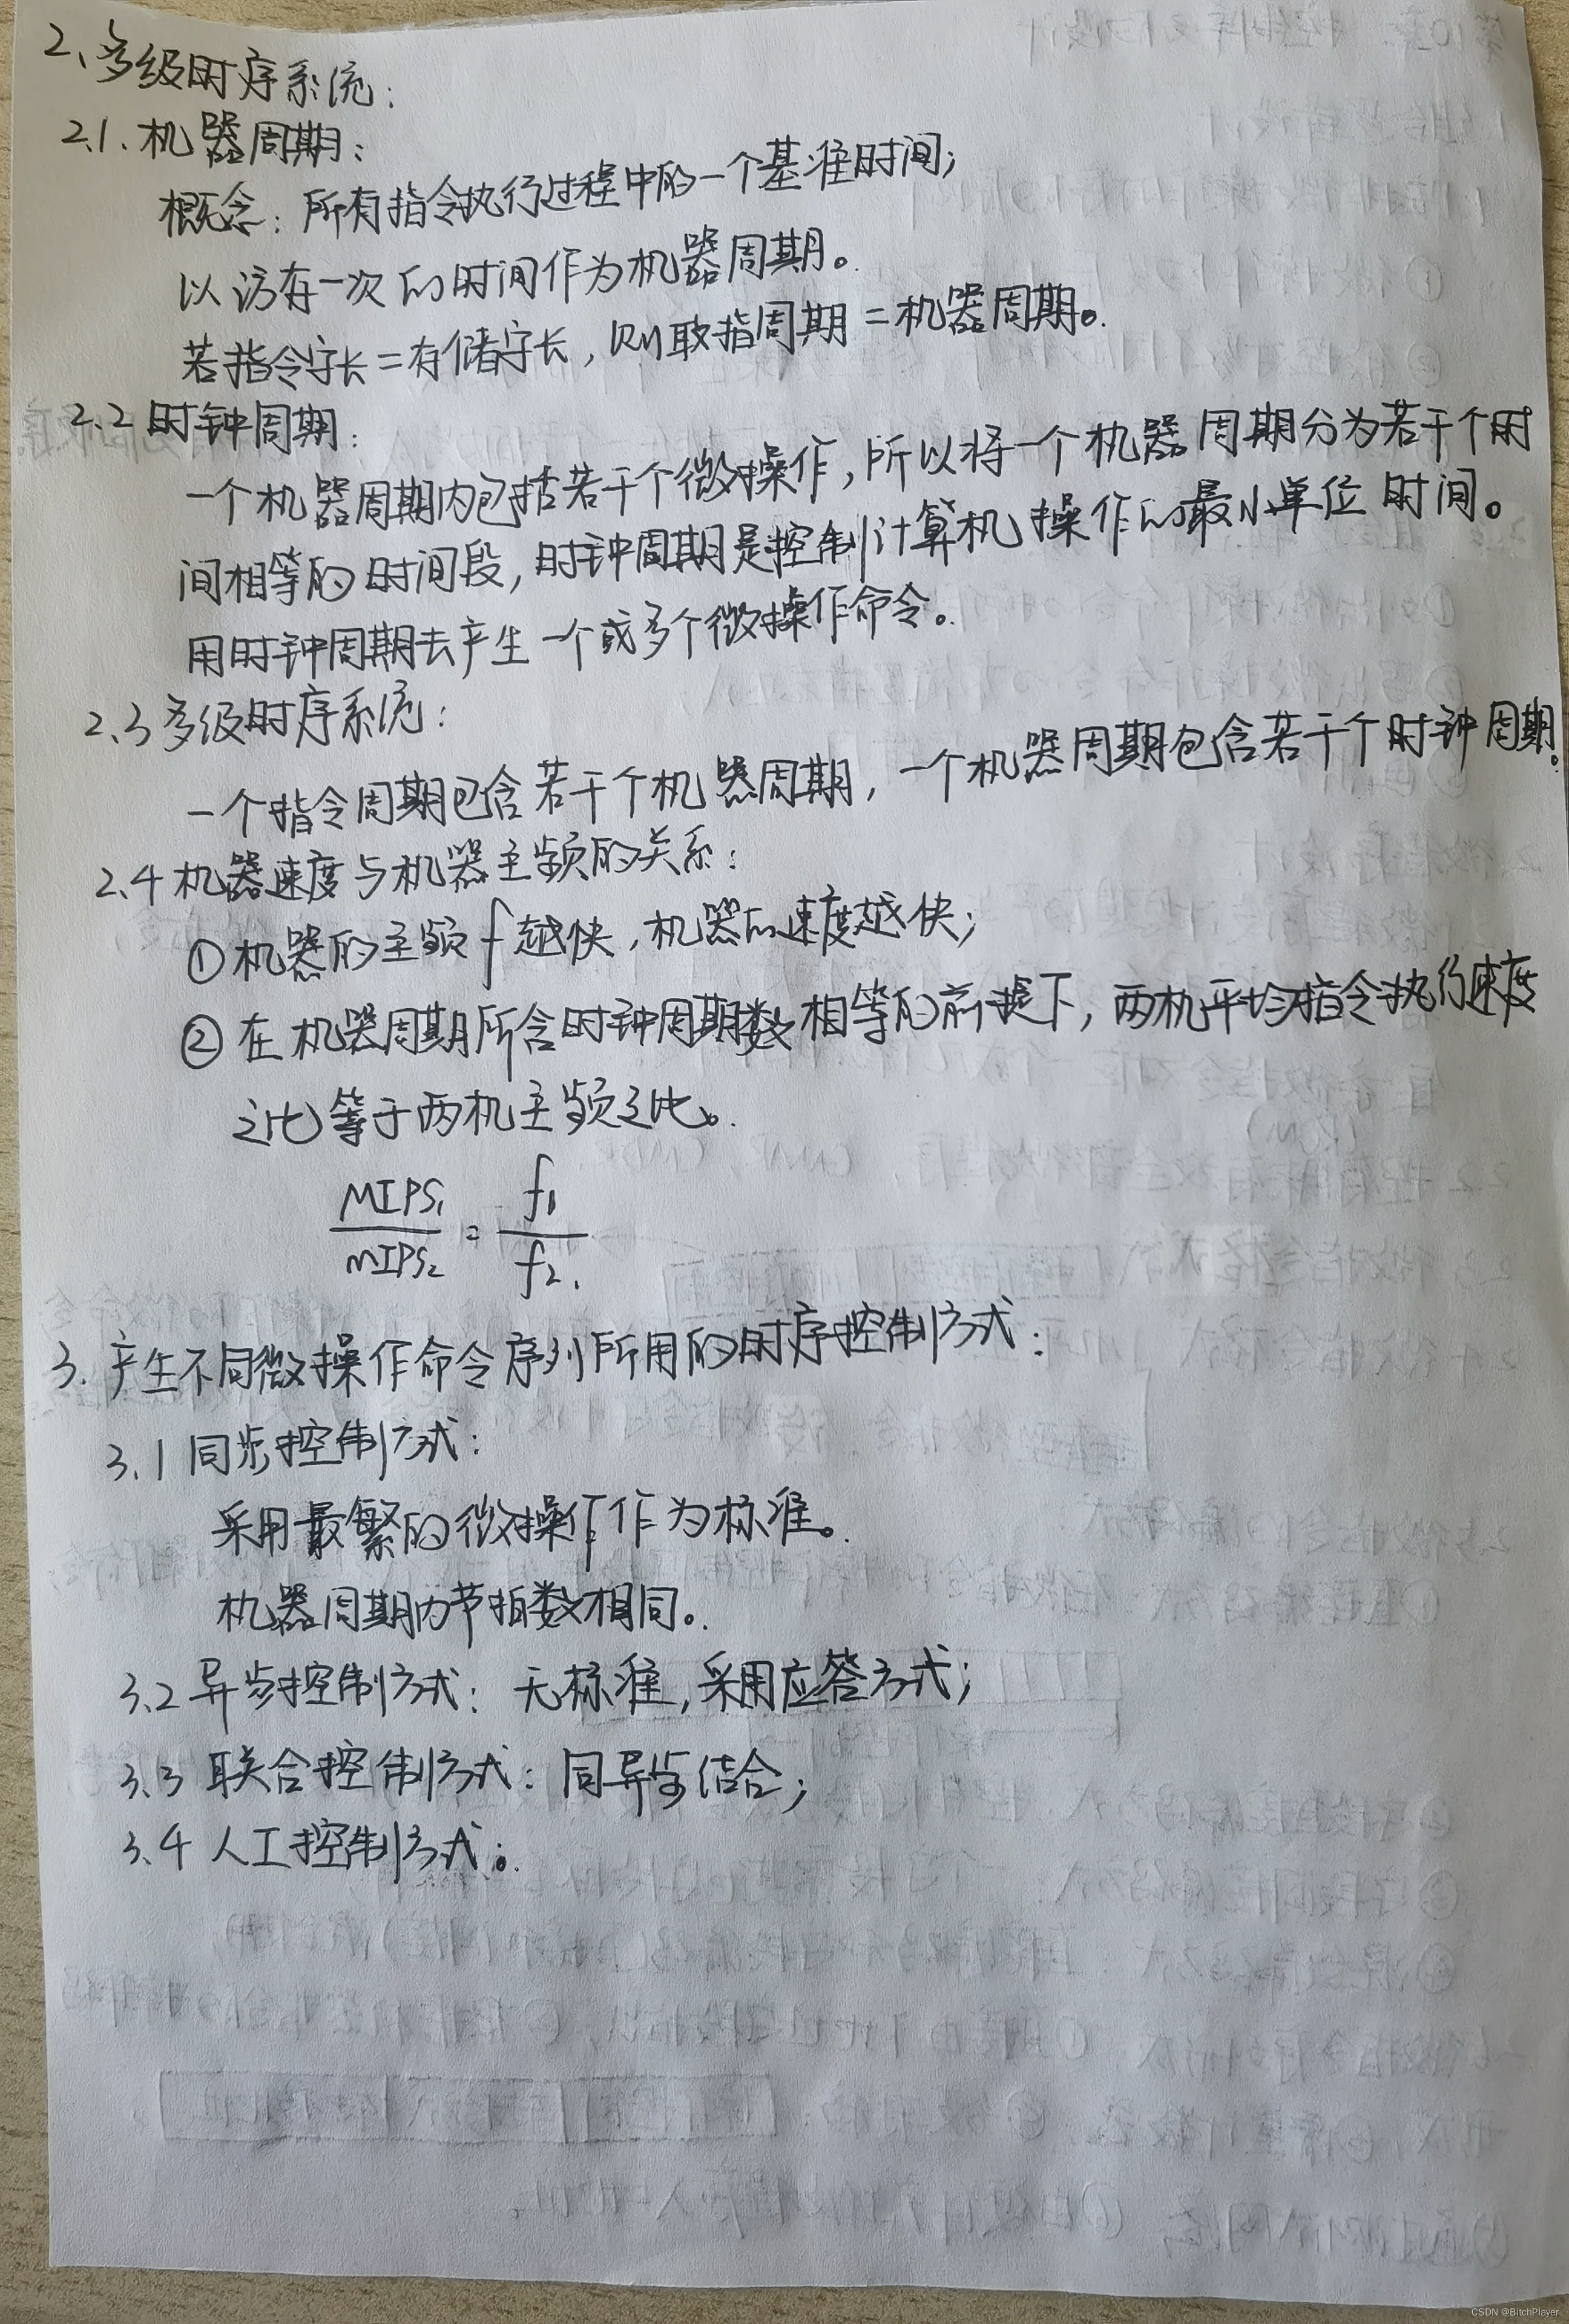 2、多级时序系统:
2.1.机器周期:
概念:所有指令执行过程中的一个基准时间;
以访存一次的时间作为机器周期。
若指令字长=存储字长,则取指周期=机器周期。
2.2时钟周期:
一个机器周期内包括若干个微操作,所以将一个机器周期分为若干个时
间相等的时间段,时钟周期是控制计算机操作的最小单位时间。
用时钟周期去产生一个或多个微操作命令。
2.3多级时序系统:
一个指令周期包含若干个机器周期,一个机器周期包含若干个时钟周期。
2.4机器速度与机器主频的关系:
①机器的主频f越快,机器的速度越快;
②在机器周期所含时钟周期数相等的前提下,两机平均指令执行速度
之比等于两机主频之比。
MIPS₁/MIPS₂ = f₁/f₂.
3.产生不同微操作命令序列所用的时序控制方式:
3.1同步控制方式:
采用最繁的微操作作为标准。
机器周期内节拍数相同。
3.2异步控制方式:无标准,采用应答方式;
3.3联合控制方式:同异步结合;
3.4人工控制方式。
CSDN @BitchPlayer